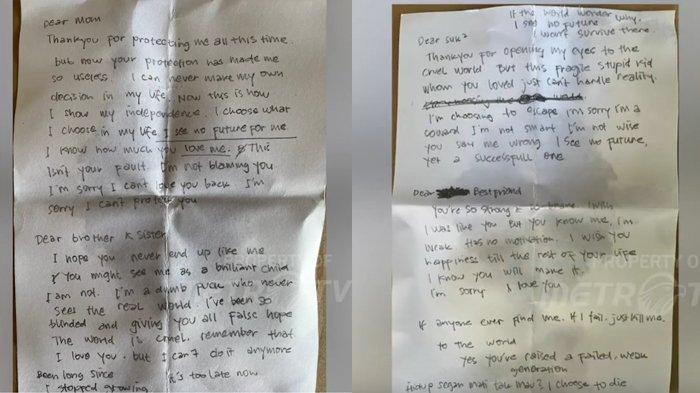 Dear Mom
Thankyou for protecting me all this time.
but now your protection has made me
so useless. I can never make my own
decision in my life. Now this is how
I show my independence. I choose what
I choose in my life I see no future for me.
I know how much you love me. This
Isn't your fault. I'm not blaming you
I'm sorry I can't love you back I'm
sorry I can't protect you
Dear brother & sister
I hope you never end up like me
You might see me as a brilliant child
I am not. I'm a dumb who never
sees the real world. I've been so
blinded and giving you all false hope
The world is cruel. remember that
I love you. but I can't do it anymore
Been long since it's too late now
I stopped growing
If the world wonder why.
I see no future
I won't survive there.
Dear
Thankyou for opening my eyes to the
cruel world But this fragile stupid kid
whom you loved just can't handle reality.
I'm choosing to escape I'm sorry I'm a
coward I'm not smart I'm not wise
you say me wrong I see no future,
yet a successfull one
Dear Bestfriend
You're so strong & so brave I wish
I was like you But you know me, I'm
weak Has no motivation. I wish you
happiness till the rest of your life
I know you will make it.
I'm sorry I love you
If anyone ever find me. If I fail. just kill me.
to the world
Yes you've raised a failed, weak
generation
Hidup segan mati tak mau? I choose to die
PROPERTY OF
METRO TV
PROPERTY OF
METRO TV